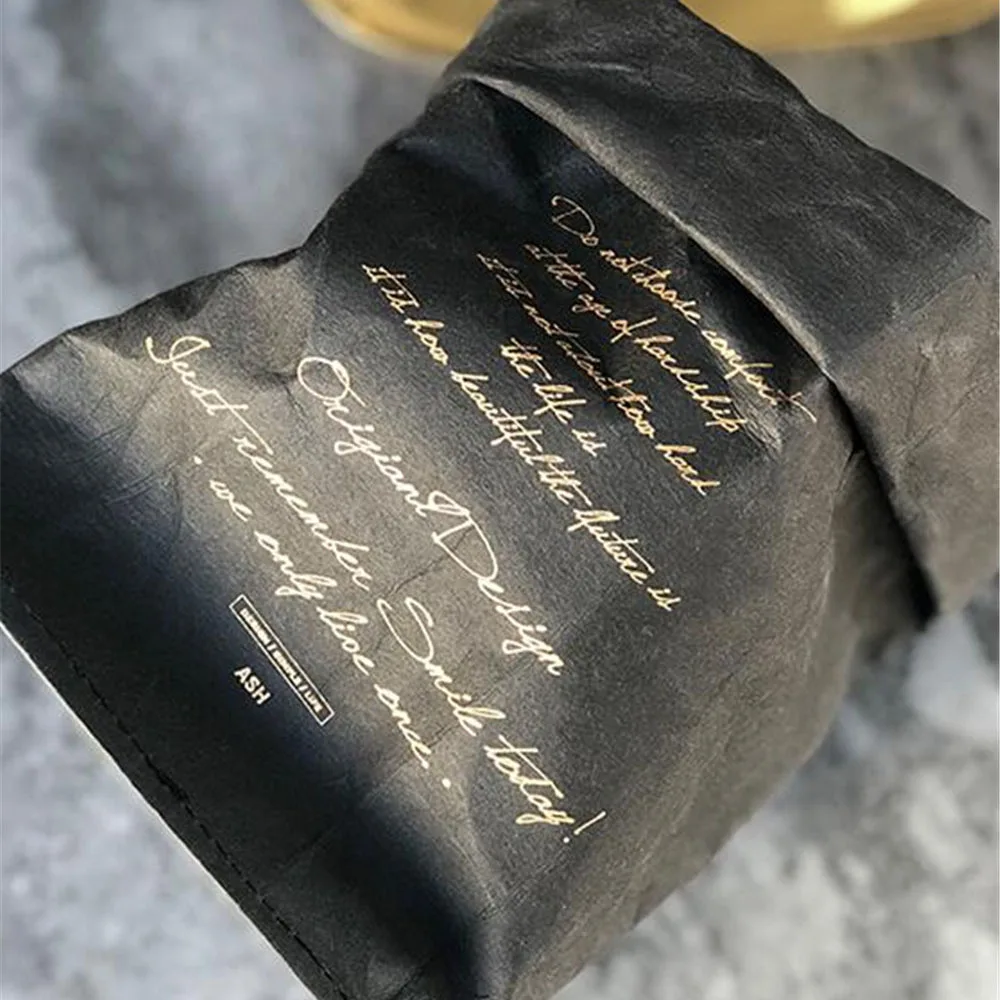 Do not choose comfort
at the age of hardship
it is not about how hard
the life is
it is how beautiful the future is
OrigianI Design
Just remember Smile today!
. we only live once. .
DESIGN / SIMPLE / LIFE
ASH